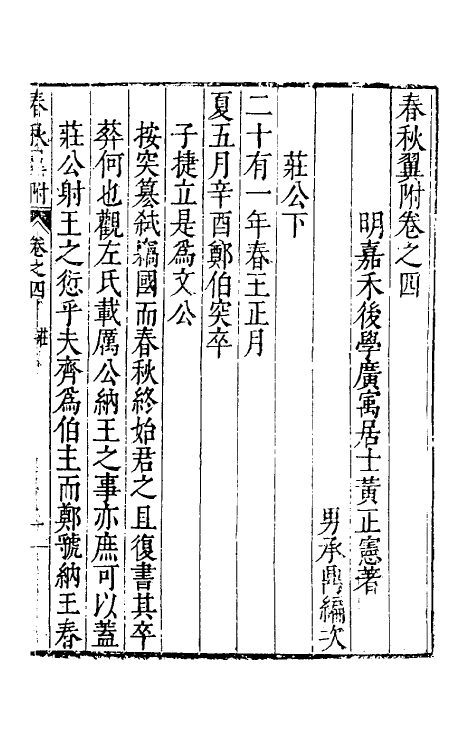 春秋翼附卷之四
明嘉禾後學廣寓居士黃正憲著
男承鼎編次
莊公下
二十有一年春王正月
夏五月辛酉鄭伯突卒
子捷立是爲文公
按突篡弑竊國而春秋終始君之且復書其卒
葬何也觀左氏載厲公納王之事亦庶可以蓋
莊公射王之愆乎夫齊爲伯主而鄭虢納王春
春秋翼附
卷之四
莊